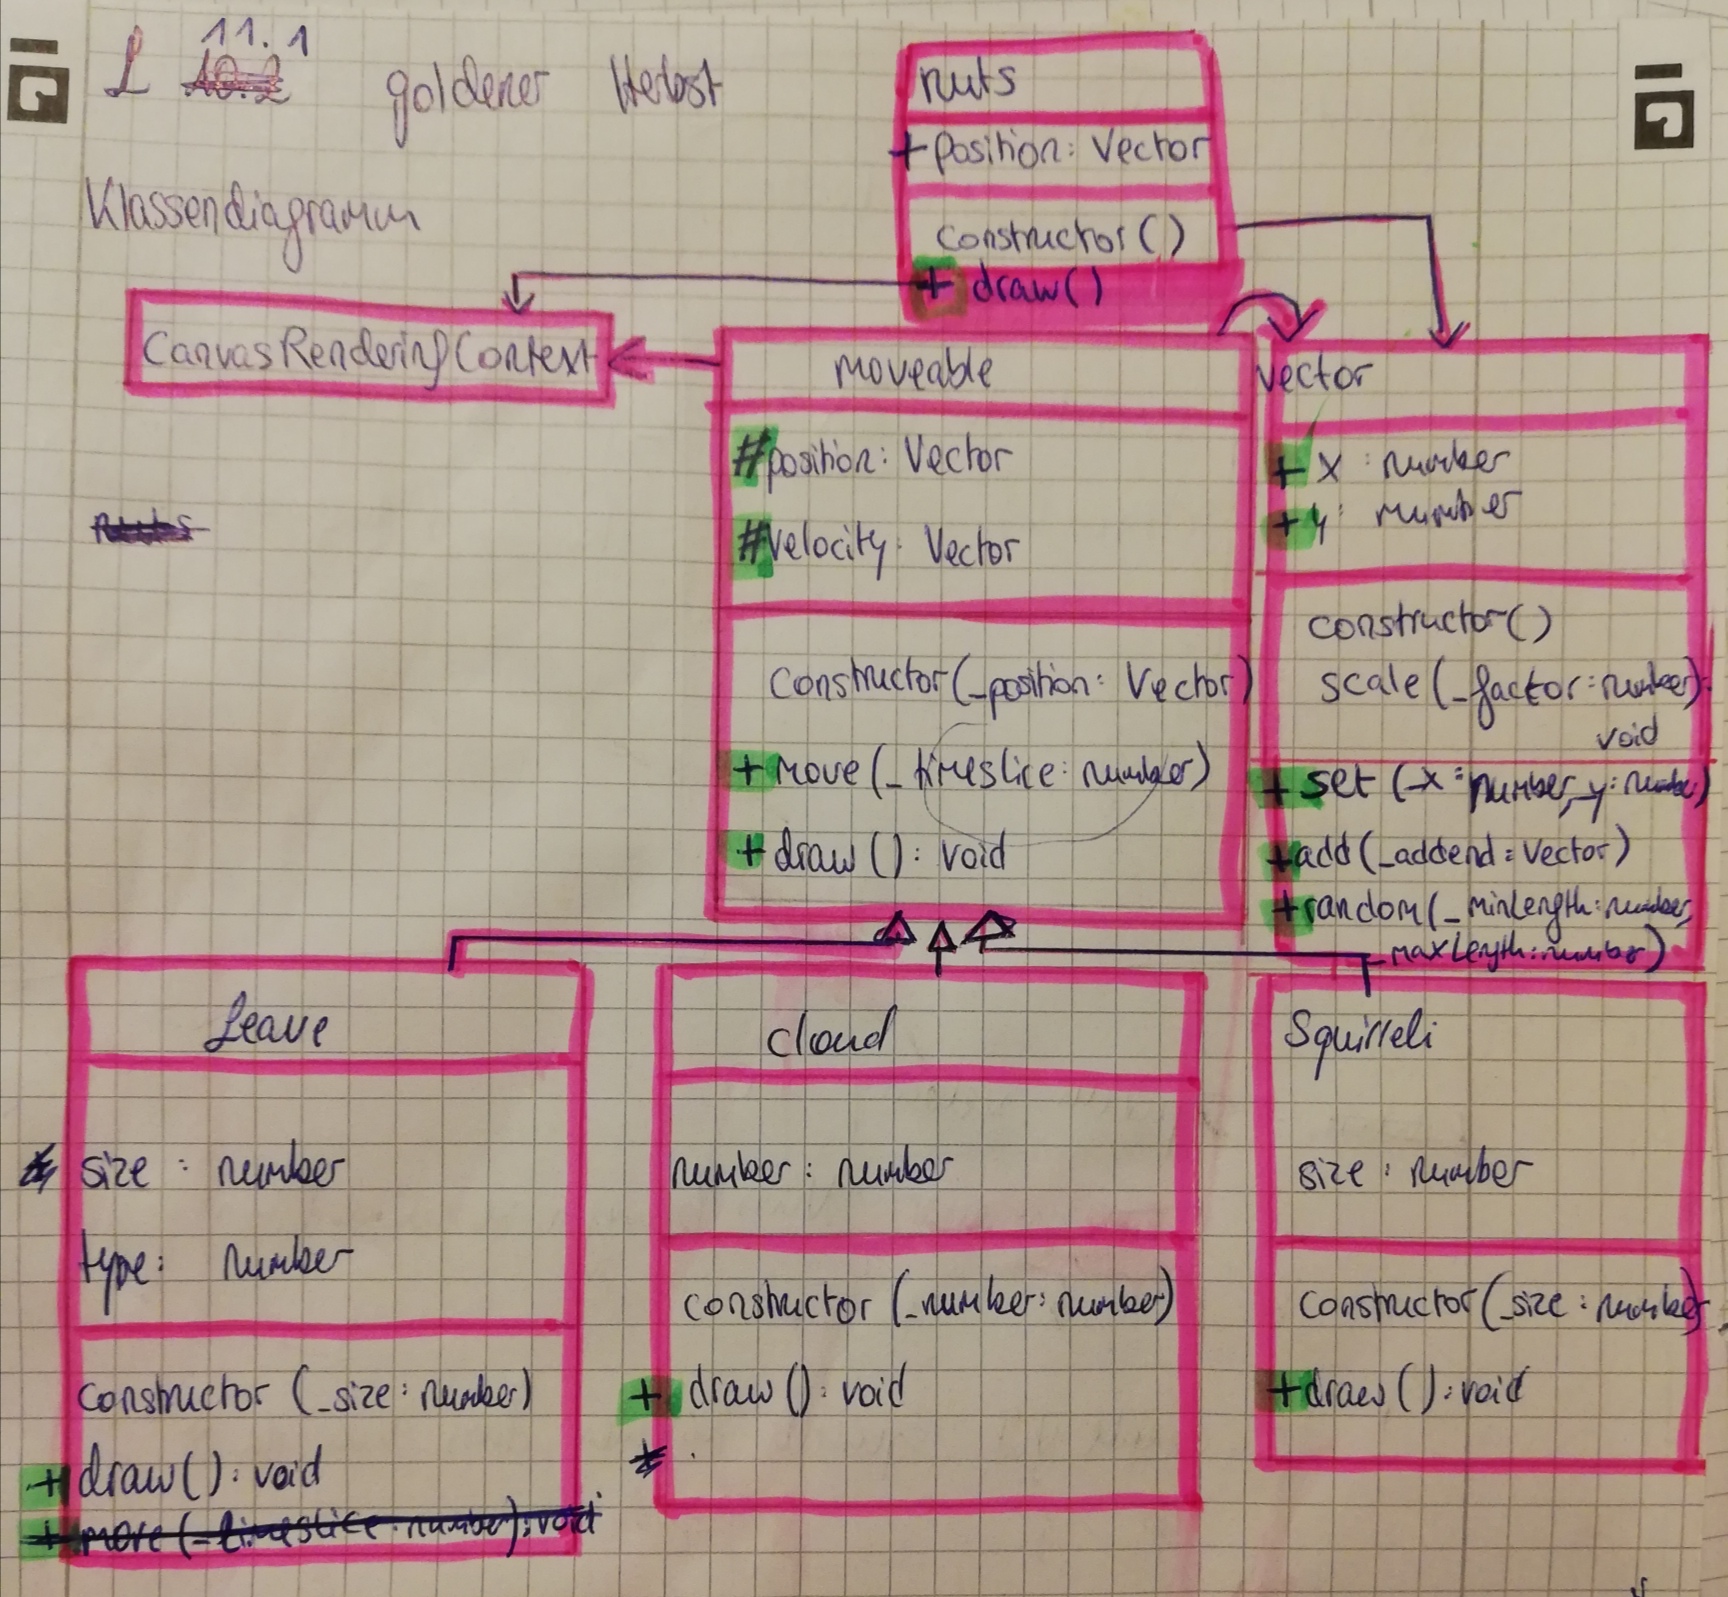 L 11.1
goldener Herbst
Klassendiagramm
nuts
+position: Vector
constructor()
+ draw()
CanvasRenderingContext
moveable
#position: Vector
#velocity: Vector
constructor(_position: Vector)
+ move(_timeslice: number)
+ draw(): void
Vector
+ x: number
+ y: number
constructor()
scale(_factor: number):
void
+ set (_x: number, _y: number)
+add(_addend: Vector)
+random(_minLength: number,
_maxLength: number)
Leave
size : number
type: number
constructor (_size: number)
+ draw(): void
+ move (_timeslice: number): void
cloud
number: number
constructor (_number: number)
+ draw(): void
Squirreli
size: number
constructor(_size: number)
+draw(): void